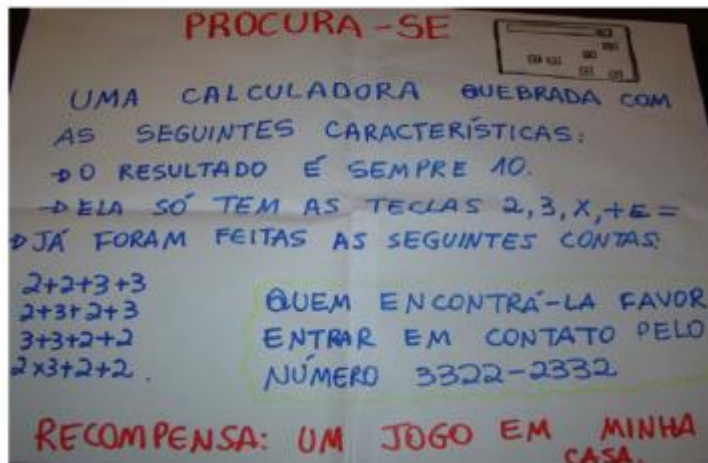 PROCURA-SE
UMA CALCULADORA QUEBRADA COM
AS SEGUINTES CARACTERÍSTICAS:
→O RESULTADO É SEMPRE 10.
→ELA SÓ TEM AS TECLAS 2,3,X,+E=
→JÁ FORAM FEITAS AS SEGUINTES CONTAS:
2+2+3+3
2+3+2+3
3+3+2+2
2x3+2+2.
QUEM ENCONTRÁ-LA FAVOR
ENTRAR EM CONTATO PELO
NÚMERO 3322-2332
RECOMPENSA: UM JOGO EM MINHA
CASA.